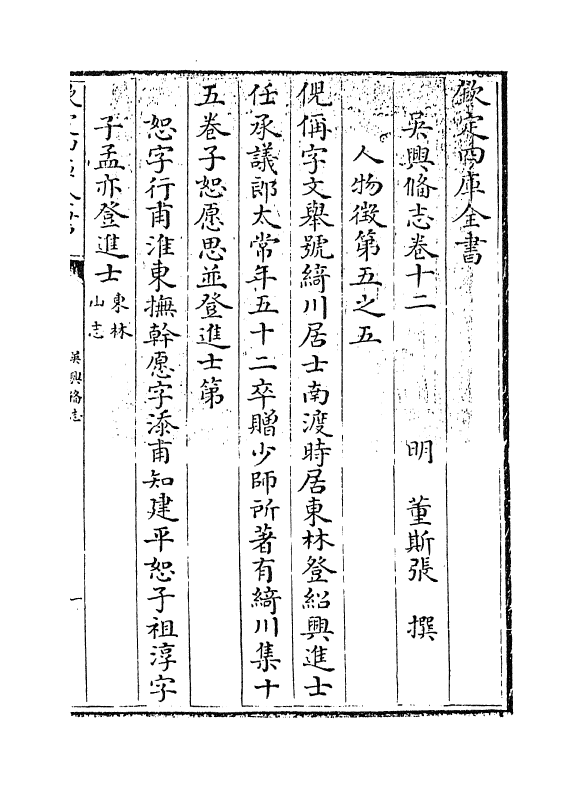 欽定四庫全書
吳興備志卷十二
明 董斯張 撰
人物徵第五之五
倪偁字文舉號綺川居士南渡時居東林登紹興進士
任承議郎太常年五十二卒贈少師所著有綺川集十
五卷子恕愿思並登進士第
恕字行甫淮東撫幹愿字添甫知建平恕子祖淳字
子孟亦登進士東林
山志
吳興備志
一